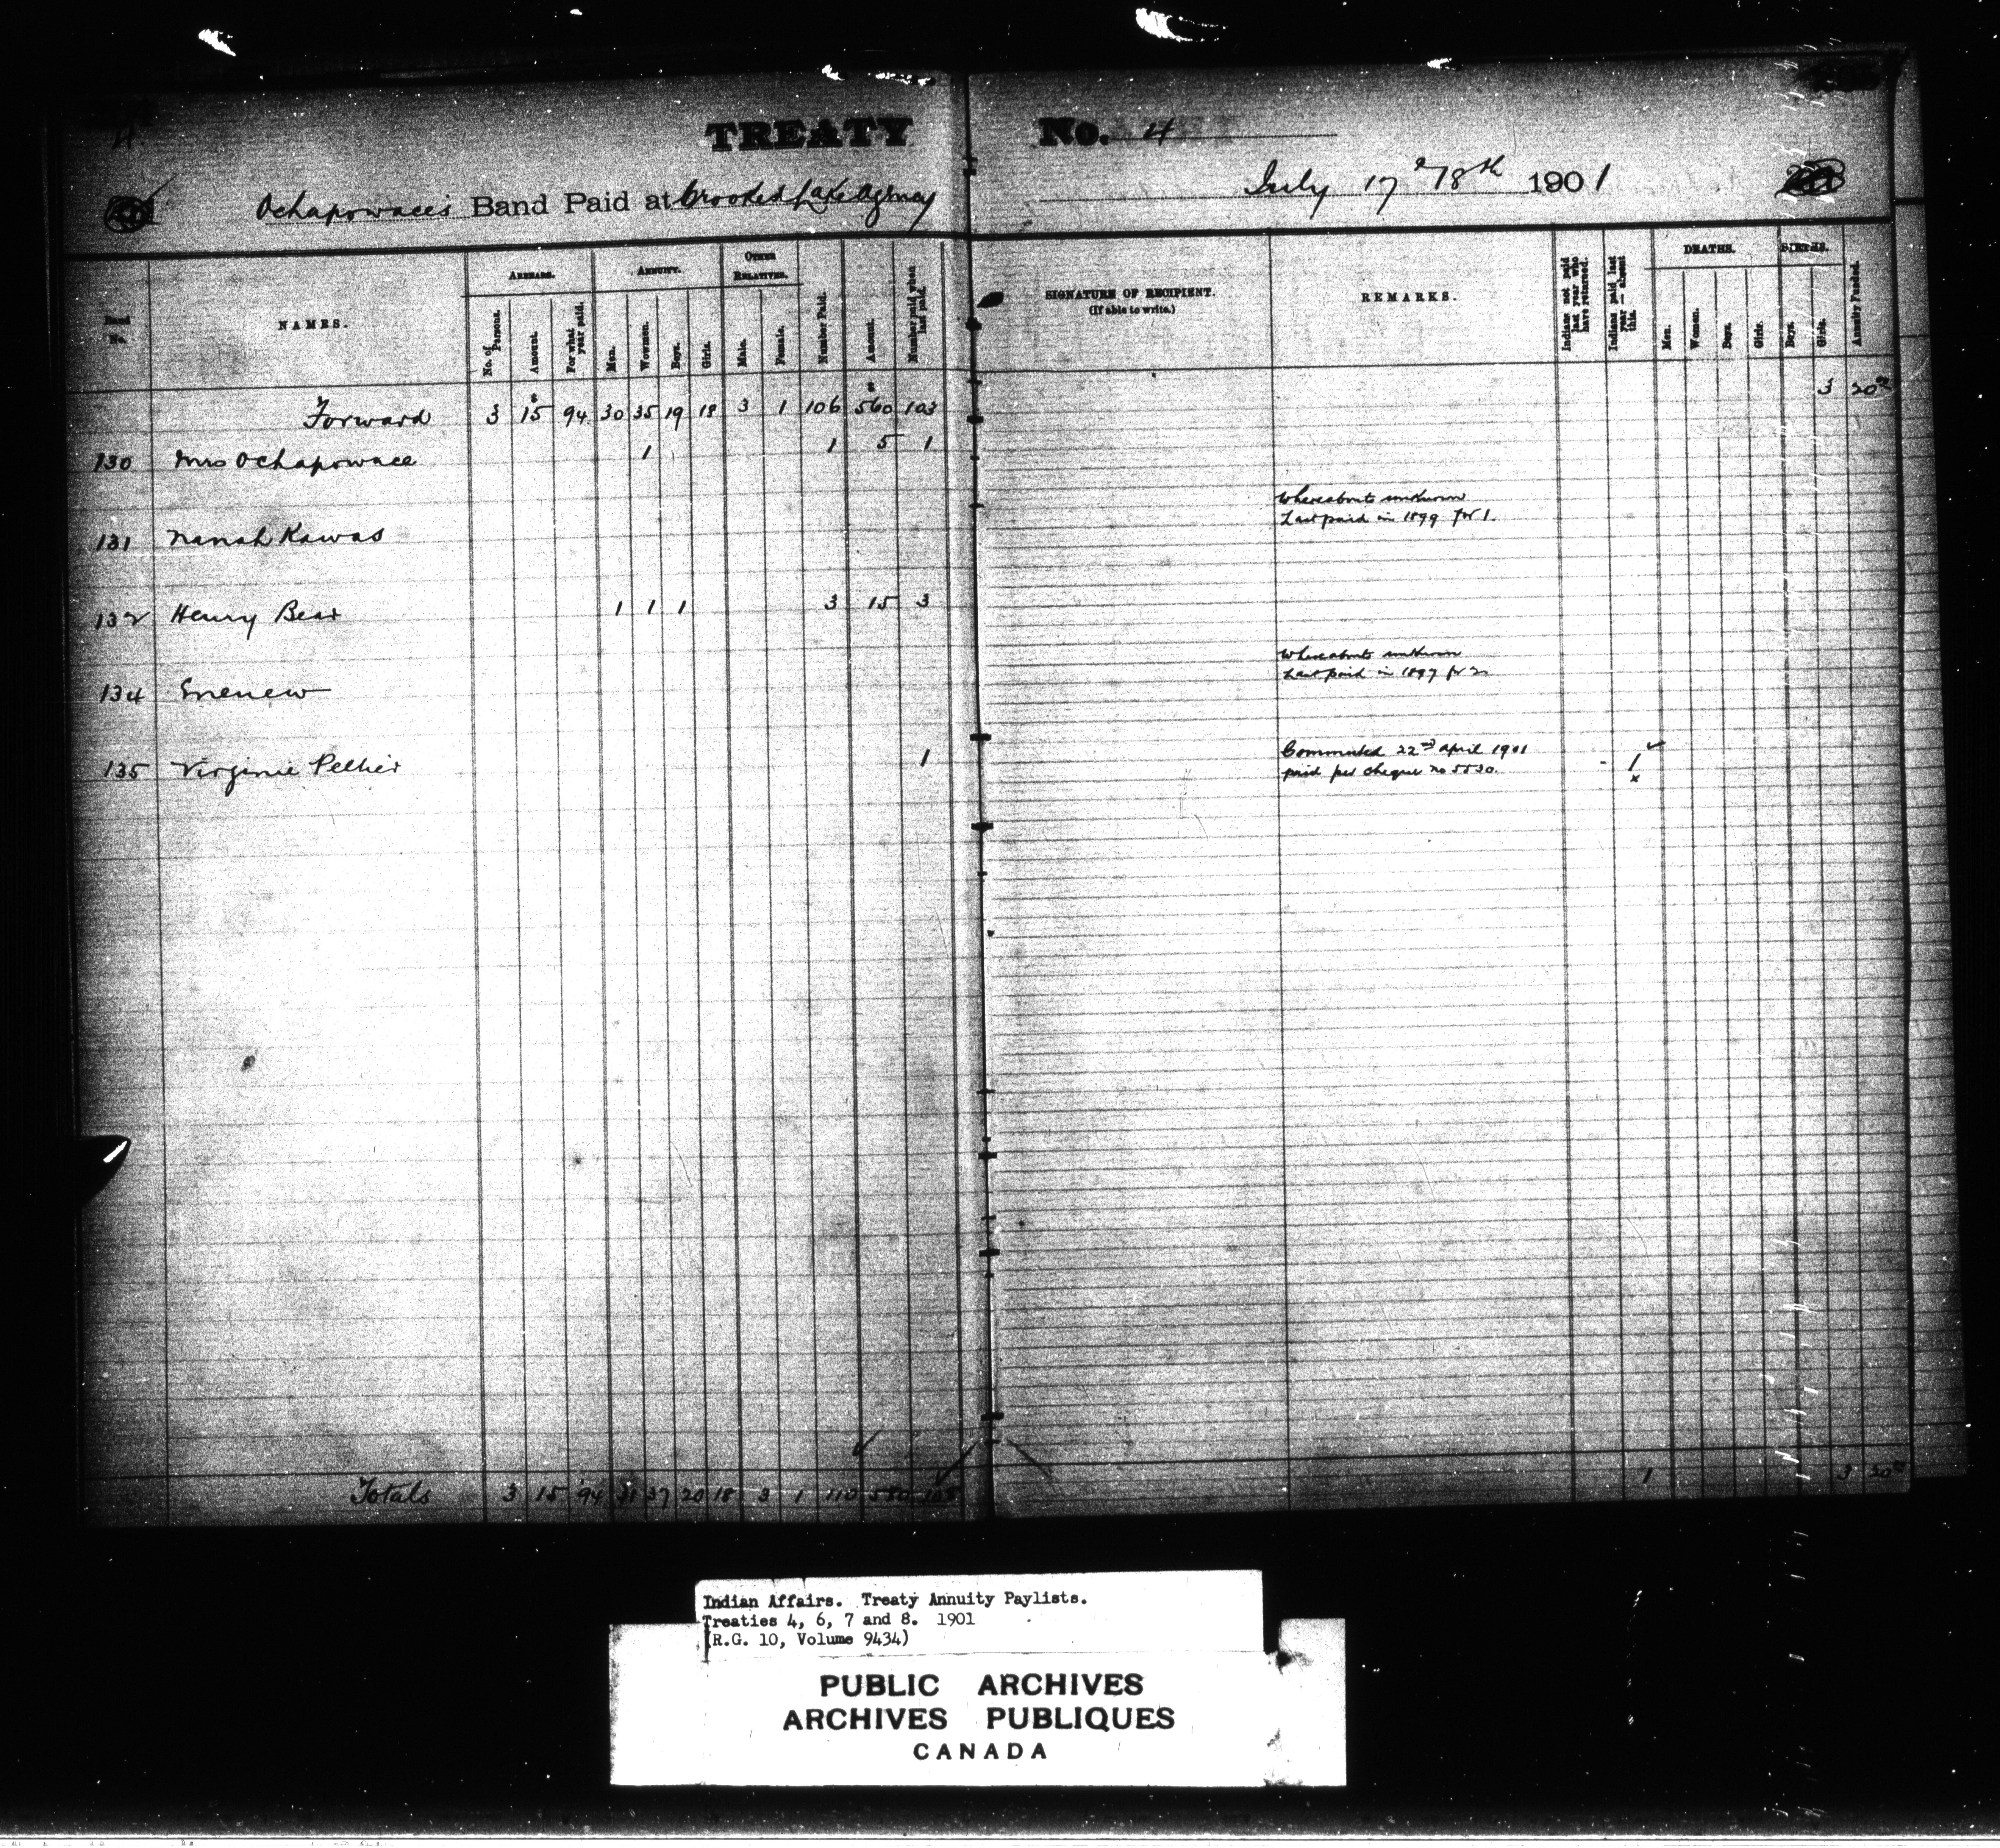 TREATY No. 4
Ochapowace's Band Paid at Crooked Lake Agency July 17 & 18th 1901
Band No.
NAMES.
ARREARS.
No. of Persons.
Amount.
For what year paid.
ANNUITY.
Men.
Women.
Boys.
Girls.
OTHER RELATIVES.
Male.
Female.
Number Paid.
Amount.
Number paid when last paid.
SIGNATURE OF RECIPIENT.
(If able to write.)
REMARKS.
Indians not paid last year who have returned.
Indians paid last year — absent this.
DEATHS.
Men.
Women.
Boys.
Girls.
BIRTHS.
Boys.
Girls.
Annuity Funded.
Forward 3 15 94 30 35 19 18 3 1 106 560 103 3 20
130 Mrs Ochapowace 1 1 5 1
Whereabouts unknown
Last paid in 1899 for 1.
131 Nanah Kawas
132 Henry Bear 1 1 1 3 15 3
Whereabouts unknown
Last paid in 1897 for 2
134 Enenew
135 Virginie Pelltier 1 Commuted 22nd April 1901 1
paid per cheque no 5530.
Totals 3 15 94 31 37 20 18 3 1 110 580 108 1 3 20
Indian Affairs. Treaty Annuity Paylists.
Treaties 4, 6, 7 and 8. 1901
(R.G. 10, Volume 9434)
PUBLIC ARCHIVES
ARCHIVES PUBLIQUES
CANADA